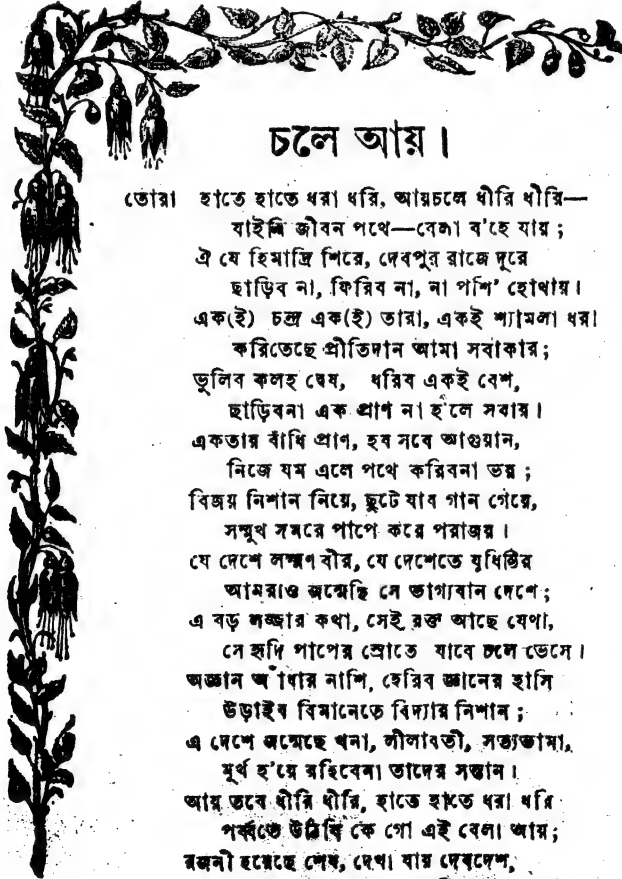 চলে আয়।
তোরা হাতে হাতে ধরা ধরি, আয়চলে ধীরি ধীরি—
যাইবি জীবন পথে—বেলা ব'হে যায়;
ঐ যে হিমাদ্রি শিরে, দেবপুর রাজে দূরে
ছাড়িব না, ফিরিব না, না পশি' হোথায়।
এক(ই) চন্দ্র এক(ই) তারা, একই শ্যামলা ধরা
করিতেছে প্রীতিদান আমা সবাকার;
ভুলিব কলহ দ্বেষ, ধরিব একই বেশ,
ছাড়িবনা এক প্রাণ না হ'লে সবায়।
একতার বাঁধি প্রাণ, হব সবে আগুয়ান,
নিজে যম এলে পথে করিবনা ভয়;
বিজয় নিশান নিয়ে, ছুটে যাব গান গেয়ে,
সম্মুখ সমরে পাপে করে পরাজয়।
যে দেশে লক্ষ্মণ বীর, যে দেশেতে যুধিষ্ঠির
আমরাও জন্মেছি সে ভাগ্যবান দেশে;
এ বড় লজ্জার কথা, সেই রক্ত আছে যেথা,
সে হৃদি পাপের স্রোতে যাবে চলে ভেসে।
অজ্ঞান আঁধার নাশি, হেরিব জ্ঞানের হাসি
উড়াইব বিমানেতে বিদ্যার নিশান;
এ দেশে জন্মেছে খনা, লীলাবতী, সত্যভামা,
মূর্খ হ'য়ে রহিবেনা তাদের সন্তান।
আয় তবে ধীরি ধীরি, হাতে হাতে ধরা ধরি
পর্ব্বতে উঠিবি কে গো এই বেলা আয়;
রজনী হয়েছে শেষ, দেখা যায় দেবদেশ,